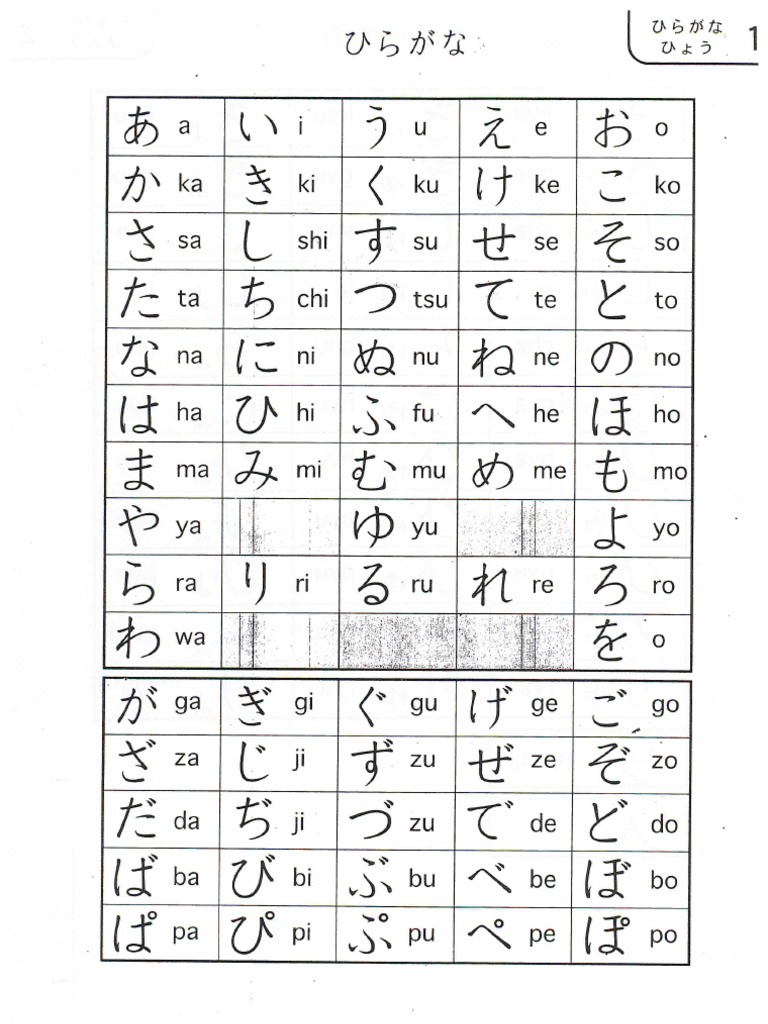 ひらがな
ひらがな
ひょう 1
あ a い i う u え e お o
か ka き ki く ku け ke こ ko
さ sa し shi す su せ se そ so
た ta ち chi つ tsu て te と to
な na に ni ぬ nu ね ne の no
は ha ひ hi ふ fu へ he ほ ho
ま ma み mi む mu め me も mo
や ya ゆ yu よ yo
ら ra り ri る ru れ re ろ ro
わ wa を o
が ga ぎ gi ぐ gu げ ge ご go
ざ za じ ji ず zu ぜ ze ぞ zo
だ da ぢ ji づ zu で de ど do
ば ba び bi ぶ bu べ be ぼ bo
ぱ pa ぴ pi ぷ pu ぺ pe ぽ po